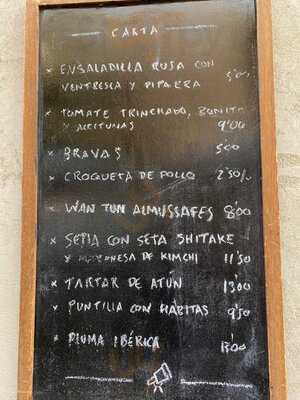 CARTA
* ENSALADILLA RUSA CON
VENTRESCA Y PIPARRA 5'00
* TOMATE TRINCHADO, BONITO
Y ACEITUNAS 9'00
* BRAVAS 5'00
* CROQUETA DE POLLO 2'50/u
* WAN TUN ALMUSSAFES 8'00
* SEPIA CON SETA SHITAKE
Y MAYONESA DE KIMCHI 11'50
* TARTAR DE ATÚN 13'00
* PUNTILLA CON HABITAS 9'50
* PLUMA IBÉRICA 13'00